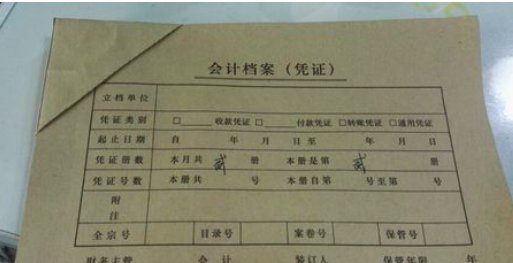 会计档案（凭证）
立档单位
凭证类别 □ 收款凭证 □ 付款凭证 □转账凭证 □通用凭证
起止日期 自 年 月 日至 年 月 日
凭证册数 本月共 贰 册 本册是第 贰 册
凭证号数 本册共 号 本册自第 号至第 号
附
注
全宗号 目录号 案卷号 保管号
财务主管 会 计 装订人 保管年限 年